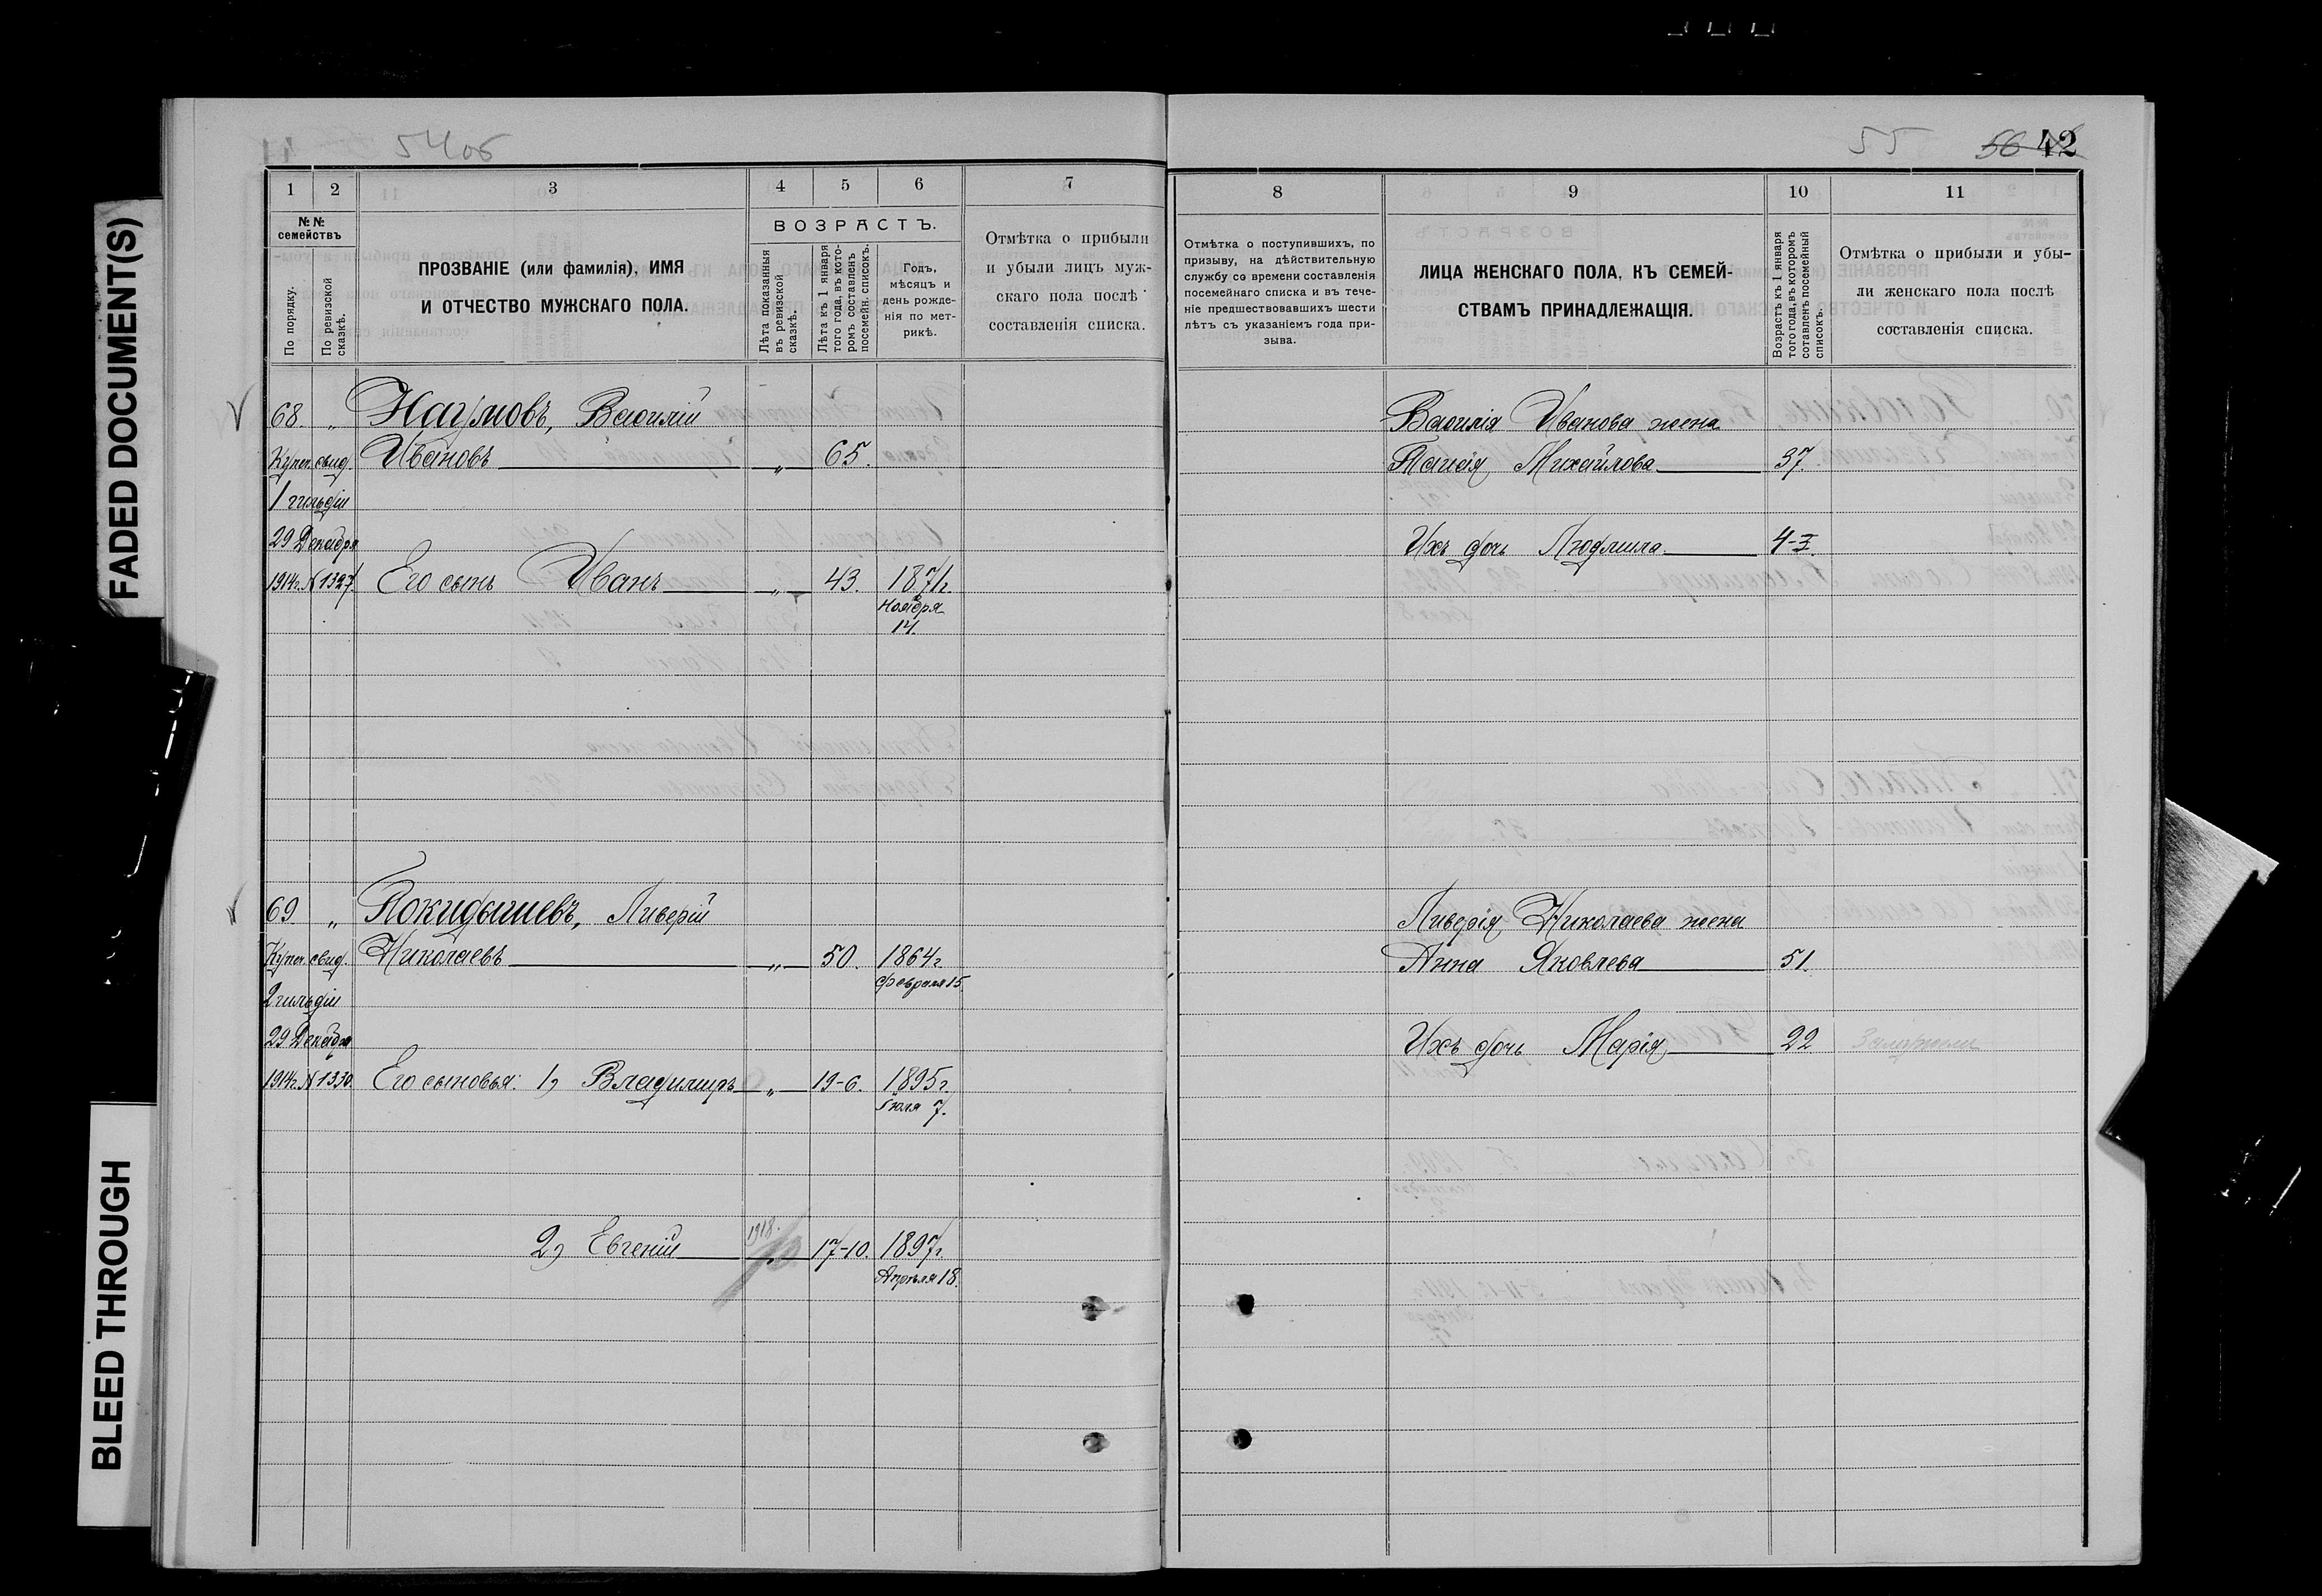 FADED DOCUMENT(S)
BLEED THROUGH
54об
55 56 42
1 2 3 4 5 6 7
№№ семействъ
По порядку.
По ревизской сказкѣ.
ПРОЗВАНІЕ (или фамилія), ИМЯ
И ОТЧЕСТВО МУЖСКАГО ПОЛА.
ВОЗРАСТЪ.
Лѣта показанныя въ ревизской сказкѣ.
Лѣта къ 1 января того года, въ кото-ромъ составленъ посемейн. списокъ.
Годъ,
мѣсяцъ и
день рожде-
нія по мет-
рикѣ.
Отмѣтка о прибыли
и убыли лицъ муж-
скаго пола послѣ
составленія списка.
68. „ Наумовъ, Василій
Купеч. свид. Ивановъ „ 65.
1 гильдіи
29 Декабря
1914г. № 1327. Его сынъ Иванъ „ 43. 1871г.
Ноября
14.
69 „ Покидышевъ, Ливерій
Купеч. свид. Николаевъ „ 50. 1864г.
Февраля 15.
2 гильдіи
29 Декабря
1914г. № 1330. Его сыновья: 1, Владимиръ „ 19-6. 1895г.
Іюля 7.
1918.
2, Евгеній „ 17-10. 1897г.
Апрѣля 18.
8 9 10 11
Отмѣтка о поступившихъ, по
призыву, на дѣйствительную
службу со времени составленія
посемейнаго списка и въ тече-
ніе предшествовавшихъ шести
лѣтъ съ указаніемъ года при-
зыва.
ЛИЦА ЖЕНСКАГО ПОЛА, КЪ СЕМЕЙ-
СТВАМЪ ПРИНАДЛЕЖАЩІЯ.
Возрастъ къ 1 января
того года, въ которомъ
сотавленъ посемейный
списокъ.
Отмѣтка о прибыли и убы-
ли женскаго пола послѣ
составленія списка.
Василія Иванова жена
Михайлова 37.
Ихъ дочь Людмила 4-
Ливерія Николаева жена
Анна Яковлева 51.
Ихъ дочь Марія 22 Замужемъ